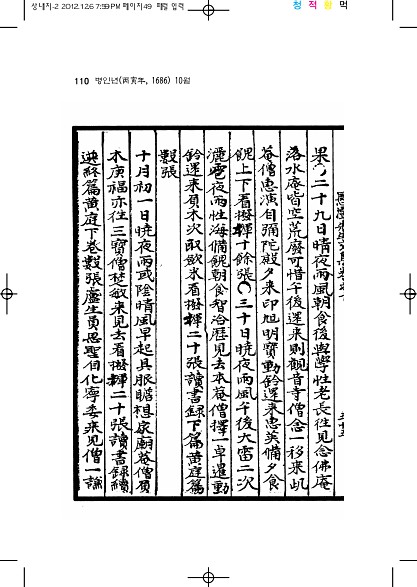 상네지-2 2012.12.6 7:59 PM 페이지49 페릴 입력
청 적 황 먹
110 병인년(丙寅年, 1686) 10월
果〇二十九日晴夜雨風朝食後與學性老長往見念佛庵
洛水庵皆空荒廢可惜午後還來則觀音寺僧念一移來此
菴僧惠演自彌陀殿夕來印旭明寶勳鈴還來忠英備夕食
〇三十日晓夜雨風午後大雷二次
灑雹夜雨性海備飯朝食智冶歷見去本菴僧擇一卓還勳
鈴還來原木次取欲米看撥輝二十張讀書錄下篇黃庭篇
數張
十月初一日晓夜雨或陰晴風早起具服瞻想家廟菴僧頂
木庚福亦往三寶僧楚敏來見去看撥輝二十張讀書錄續
選終篇黃庭下卷數張盧生員思聖自化寧委來見僧一諭